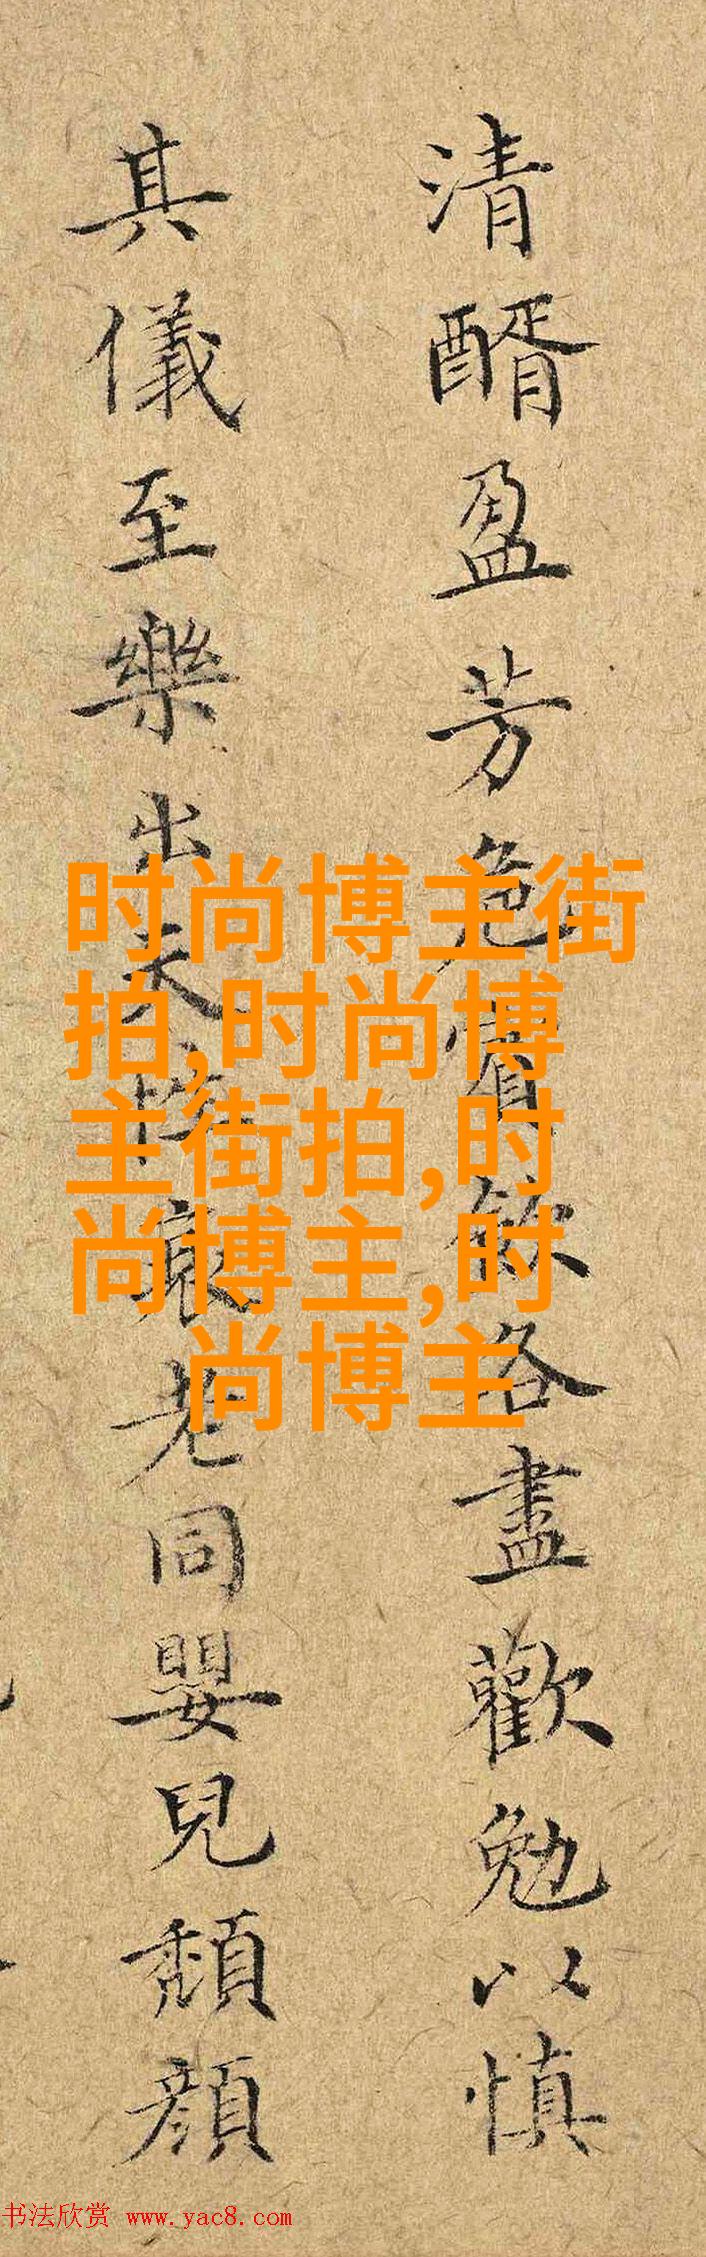 清醑盈芳卮賓飲各盡歡勉以慎
其儀至樂出天性衰老同嬰兒頽顔
时尚博主街
拍,时尚博
主街拍,时
尚博主,时
尚博主
书法欣赏 www.yac8.com